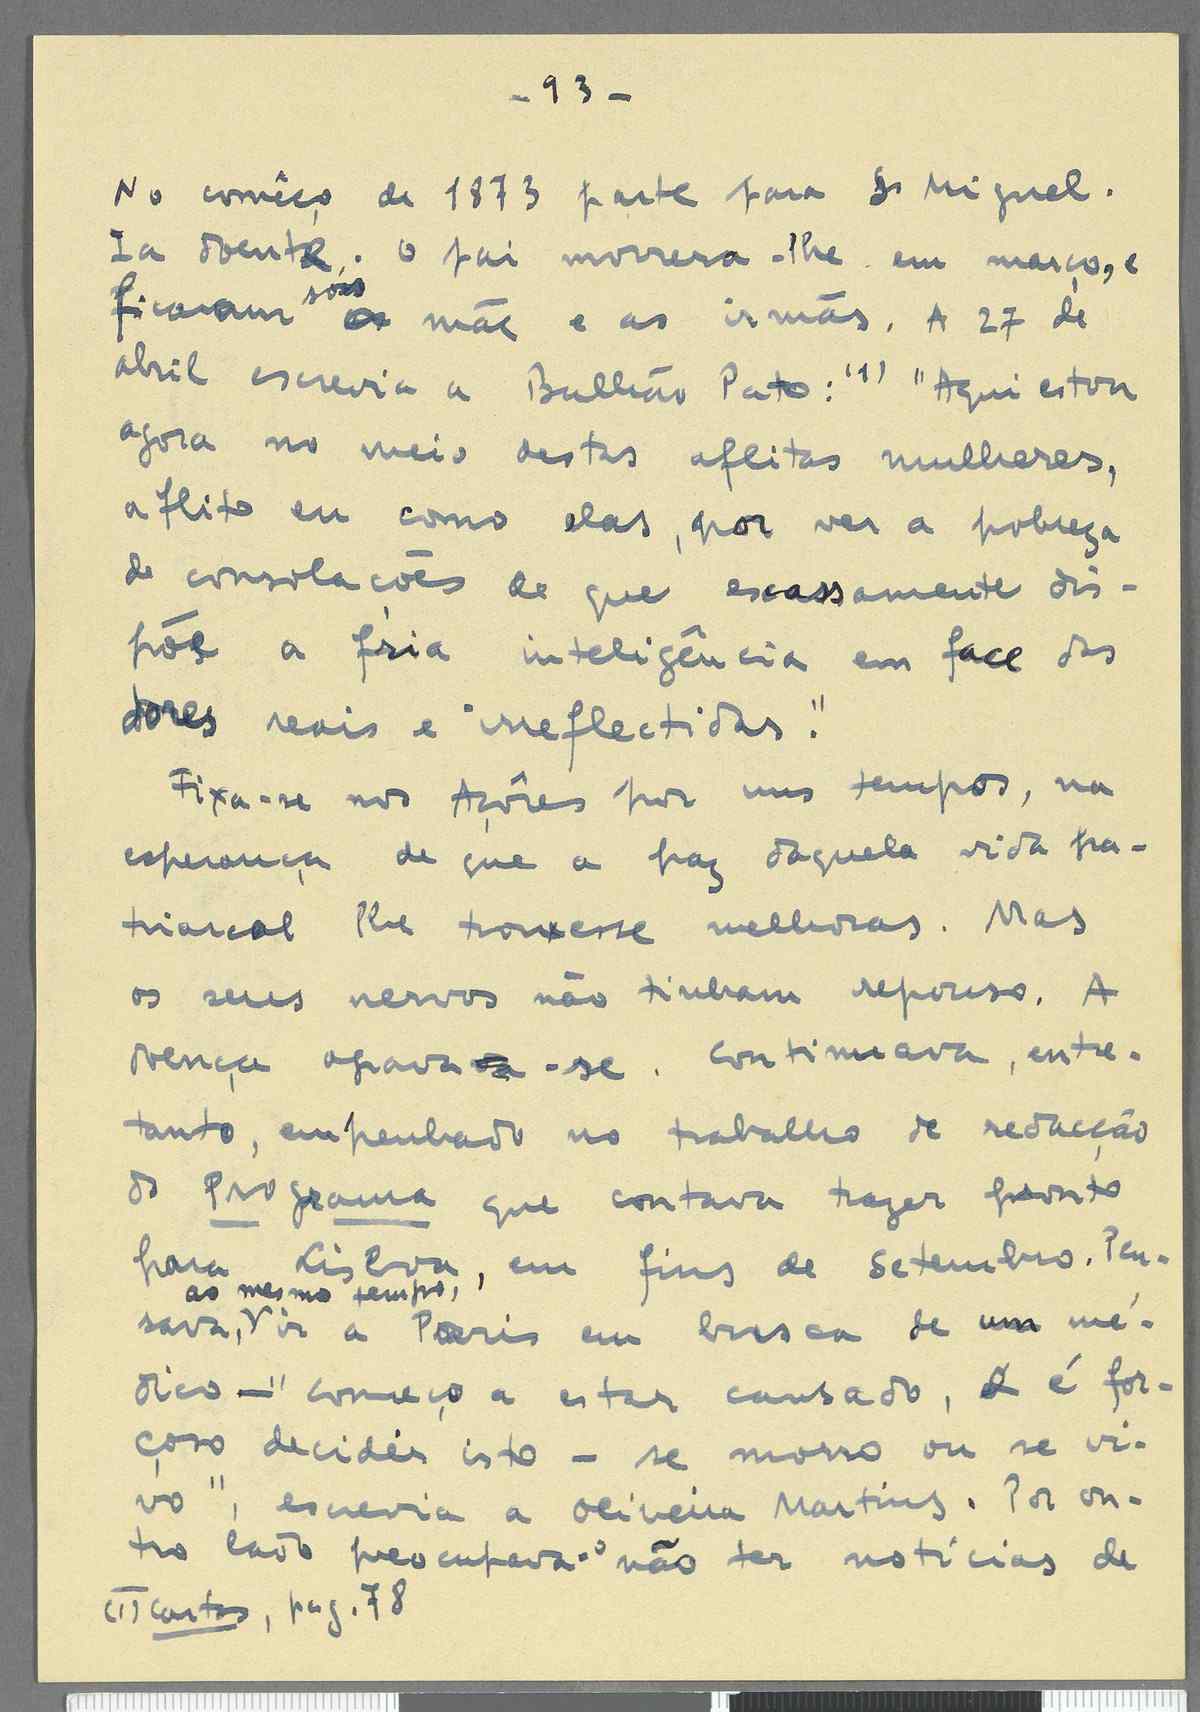 - 93 -
No comêço de 1873 parte para S. Miguel.
Ia doente. O pai morrera-lhe em março, e
ficavam sós a mãe e as irmãs. A 27 de
abril escrevia a Bulhão Pato: (1) "Aqui estou
agora no meio destas aflitas mulheres,
aflito eu como elas, por ver a pobreza
de consolações de que escassamente dis-
põe a fria inteligência em face das
dores reais e irreflectidas."
Fixa-se nos Açôres por uns tempos, na
esperança de que a paz daquela vida pa-
triarcal lhe trouxesse melhoras. Mas
os seus nervos não tinham repouso. A
doença agrava-se. Continuava, entre-
tanto, empenhado no trabalho de redacção
do Programa que contava trazer pronto
para Lisboa, em fins de Setembro. Pen-
ao mesmo tempo,
sava, vir a Paris em busca de um mé-
dico — "começo a estar cansado, e é for-
çoso decidir isto - se morro ou se vi-
vo", escrevia a Oliveira Martins. Por ou-
tro lado preocupava-o não ter notícias de
(1) Cartas, pag. 78